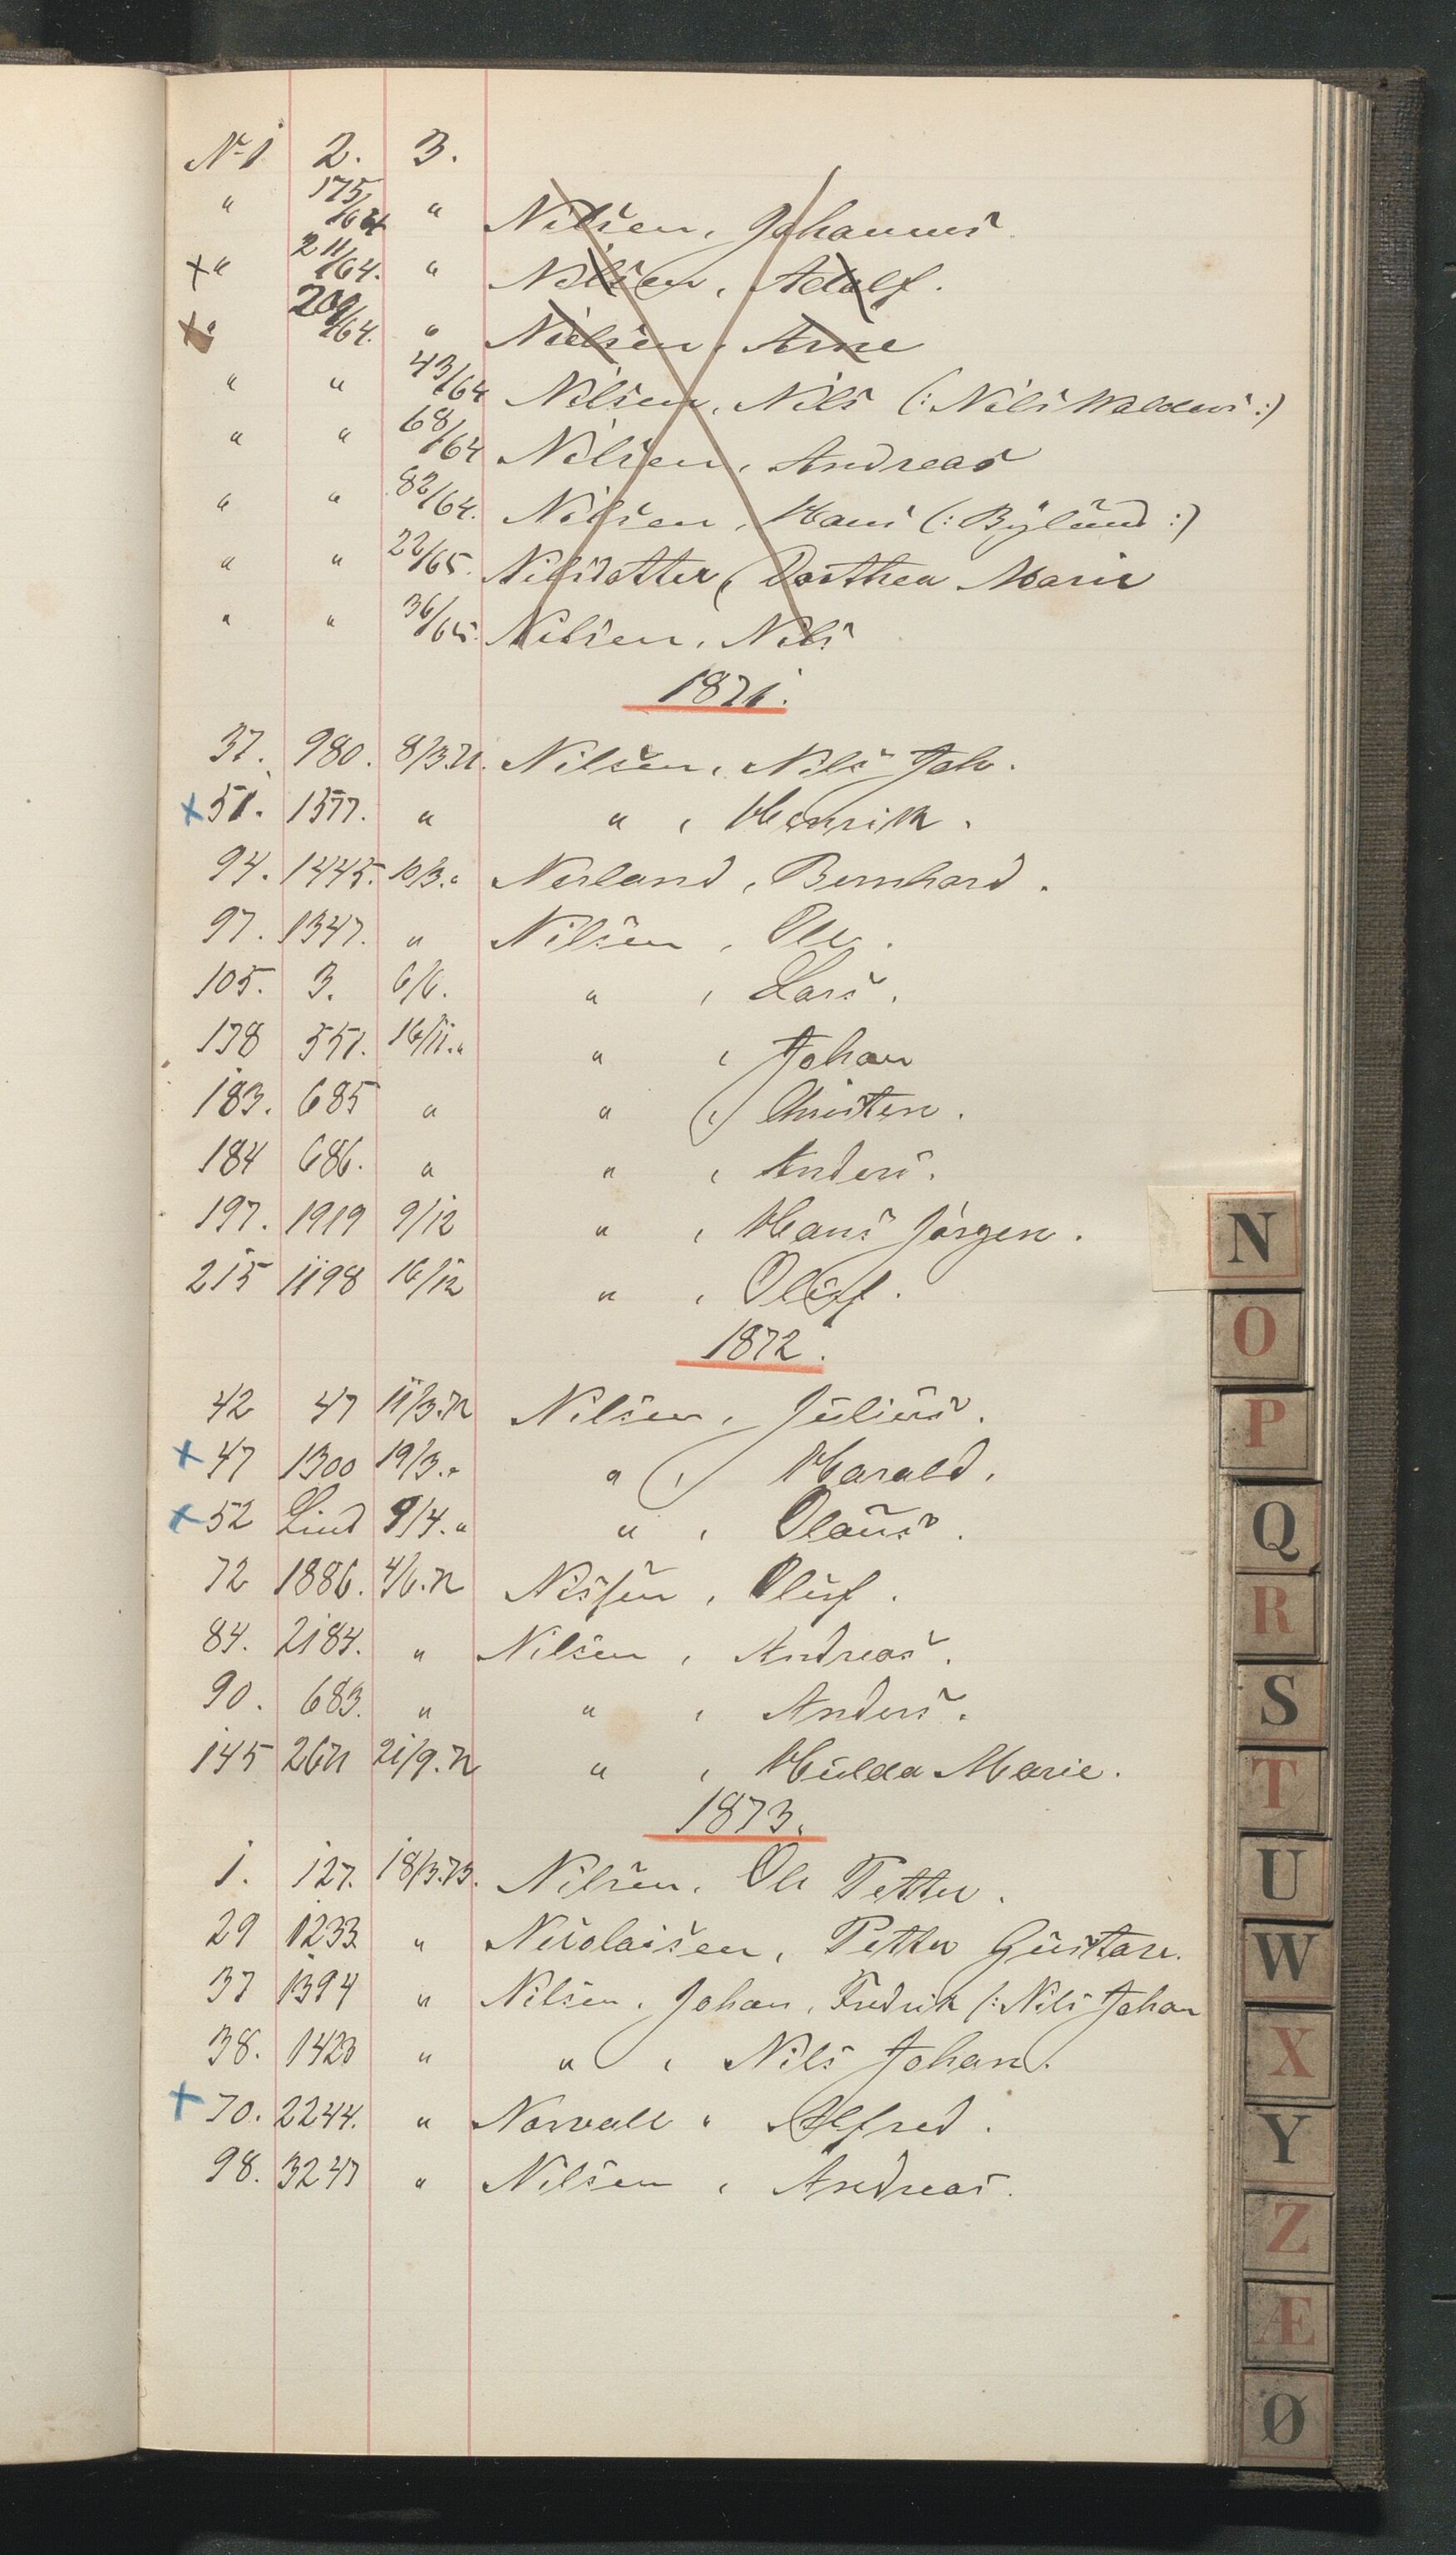 No 1 2. 3.
" 175/64 " Nilsen, Johannes
+ " 211/64. " Nilsen, Adolf.
+ " 209/64. " Nielsen, Arne
" " 43/64 Nilsen, Nils (: Nils Walders :)
" " 68/64 Nilsen, Andreas
" " 82/64. Nilsen, Hans (: Bylund :)
" " 22/65. Nilsdotter, Dorthea Marie
" " 36/65. Nilsen, Nils
1871.
37. 980. 8/3.71. Nilsen, Nils Joh.
+ 51. 1577. " " , Henrik.
94. 1445. 10/3. " Nerland, Bernhard.
97. 1347. " Nilsen, Ole.
105. 3. 6/6. " , Lars.
138 551. 16/11. " " , Johan
183. 685 " " , Christen.
184 686. " " , Anders.
197. 1919 9/12 " , Hans Jørgen.
215 1198 16/12 " , Oluf.
1872.
42 47 11/3.72 Nilsen, Julius.
+ 47 1300 19/3. " " , Harald.
+ 52 Lind 9/4. " " , Olaus.
72 1886. 4/6.72 Nissen, Oluf.
84. 2184. " Nilsen, Andreas.
90. 683. " " , Anders.
145 2671 21/9.72 " , Hulda Marie.
1873.
1. 127. 18/3.73. Nilsen, Ole Petter.
29 1233. " Nicolaisen, Petter Gustav.
37 1394 " Nilsen, Johan, Fredrik (: Nils Johan
38. 1423 " " , Nils Johan.
+ 70. 2244. " Norvall " Alfred.
98. 3247 " Nilsen, Andreas.
N
O
P
Q
R
S
T
U
W
X
Y
Z
Æ
Ø